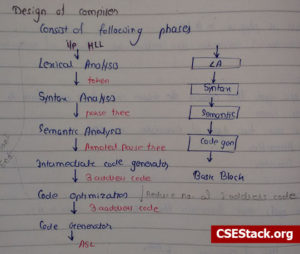 Design of compiler
Consist of following phases
i/p HLL
Lexical Analysis
token
Syntax Analysis
parse tree
Semantic Analysis
Annoted parse tree
Intermediate code generator
3 address code
Code Optimization / Reduce no. of 3 address code
3 address code
Code Generator
ASL
LA
Syntax
Semantic
Code gen
Basic Block
CSEStack.org